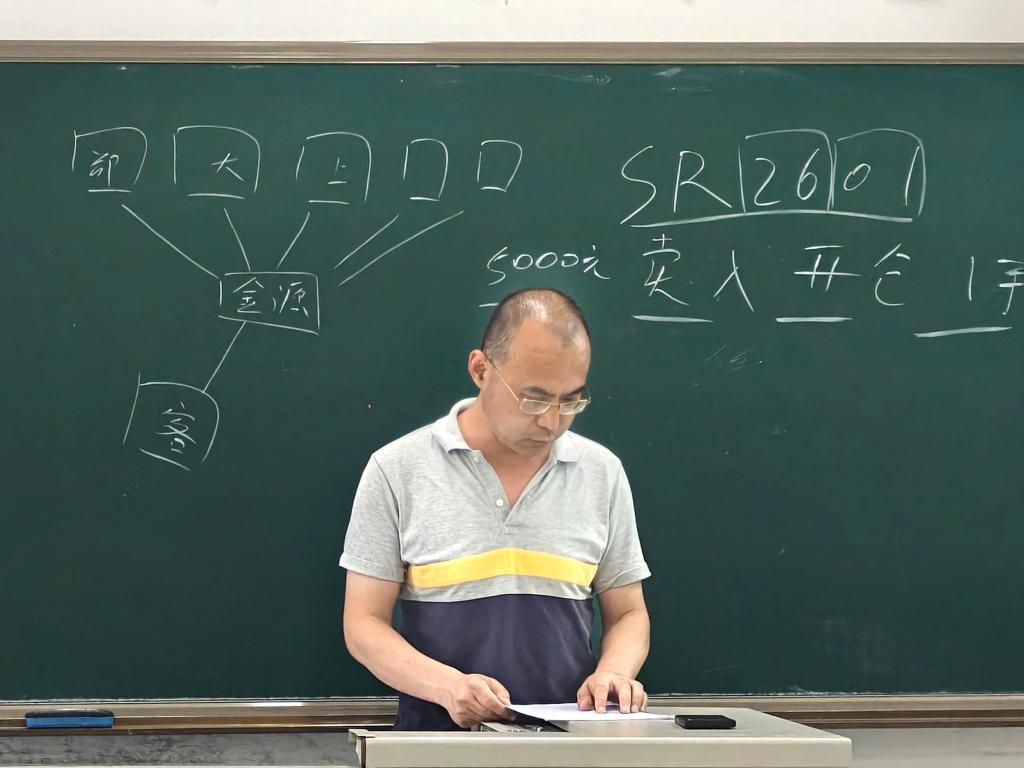 郑 大 上
SR2601
5000元 卖入 开仓 1手
金源
客